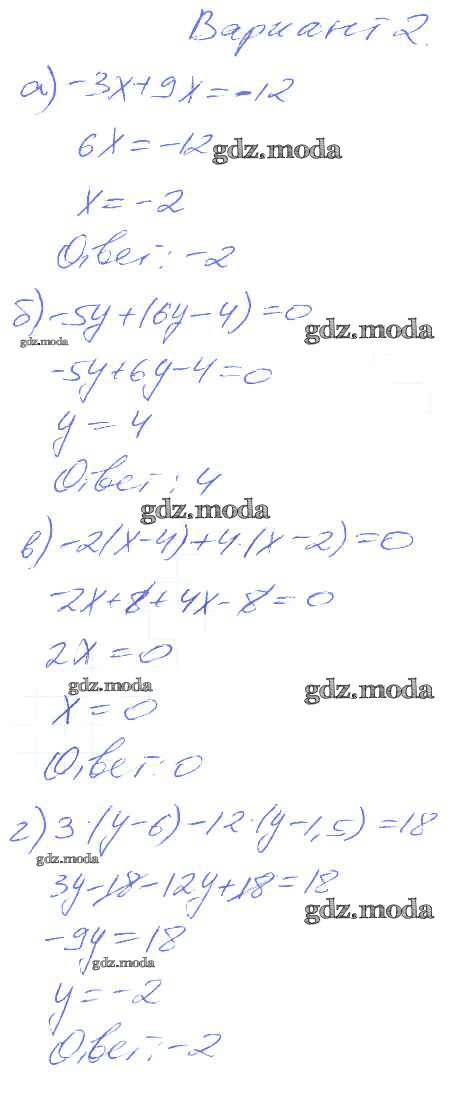 Вариант 2.
а) -3x+9x=-12
6x=-12
gdz.moda
x=-2
Ответ: -2
б) -5y+(6y-4)=0
gdz.moda
gdz.moda
-5y+6y-4=0
y=4
Ответ: 4
gdz.moda
в) -2(x-4)+4·(x-2)=0
-2x+8+4x-8=0
2x=0
gdz.moda
gdz.moda
x=0
Ответ: 0
г) 3·(y-6)-12·(y-1,5)=18
gdz.moda
3y-18-12y+18=18
gdz.moda
-9y=18
gdz.moda
y=-2
Ответ: -2